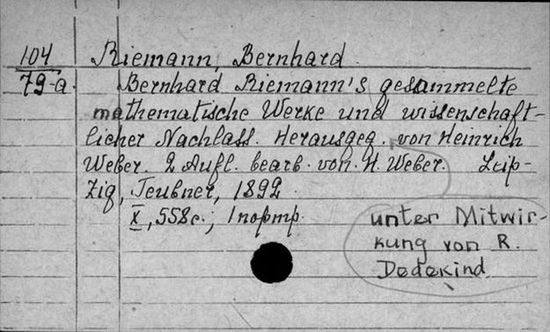 104
79-a.
Riemann, Bernhard.
Bernhard Riemann's gesammelte
mathematische Werke und wissenschaft-
licher Nachlass. Herausgeg. von Heinrich
Weber. 2 Aufl. bearb. von H. Weber. Leip-
zig, Teubner, 1892.
X, 558 с.; 1 портр.
unter Mitwir-
kung von R.
Dedekind